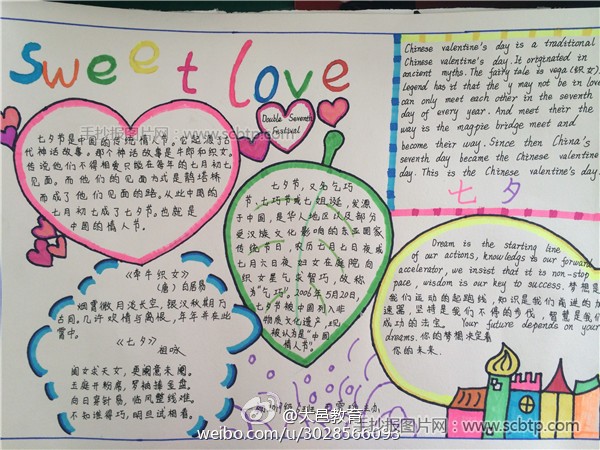 sweet love
Double Seventh
Festival
七夕节是中国的传统情人节。它起源于古
代神话故事。那个神话故事是牛郎和织女。
传说他们不得相爱只能在每年的七月初七
见面。而他们的见面方式是鹊塔桥
而成了他们见面的路。从此中国的
七月初七成了七夕节。也就是
中国的情人节。
七夕节，又名乞巧
节，七巧节或七姐诞，发源
于中国，是华人地区以及部分
受汉族文化影响的东亚国家
传统节日，农历七月七日夜或
七月六日夜妇女在庭院向
织女星乞求智巧，故称
为"乞巧"。2006年5月20日，
七夕节被中国列入非
物质文化遗产，现
被认为是"中国
情人节"。
《牵牛织女》
(唐) 白居易
烟霄微月淡长空，银汉秋期万
古同。几许欢情与离恨，年年并在此
宵中。
《七夕》
祖咏
闺女求天女，更阑意未阑。
玉庭开粉席，罗袖捧金盘。
向日穿针易，临风整线难。
不知谁得巧，明旦试相看。
Chinese valentine's day is a traditional
Chinese valentine's day. It originated in
ancient myths. The fairy tale is vega (织女).
Legend has it that the y may not be in love
can only meet each other in the seventh
day of every year. And meet their the
way is the magpie bridge meet and
become their way. Since then China's
seventh day became the Chinese valentine
day. This is the Chinese valentine's day.
七夕
Dream is the starting line
of our actions, knowledge is our forward
accelerator, we insist that it is non-stop
pace, wisdom is our key to success. 梦想是
我们运动的起跑线，知识是我们前进的加
速器，坚持是我们不停的步伐，智慧是我们
成功的法宝。Your future depends on your
dreams. 你的梦想决定着
你的未来.
手抄报图片网·www.scbtp.com
手抄报图片网·www.scbtp.com
www.scbtp.com
@大邑教育
weibo.com/u/3028566093